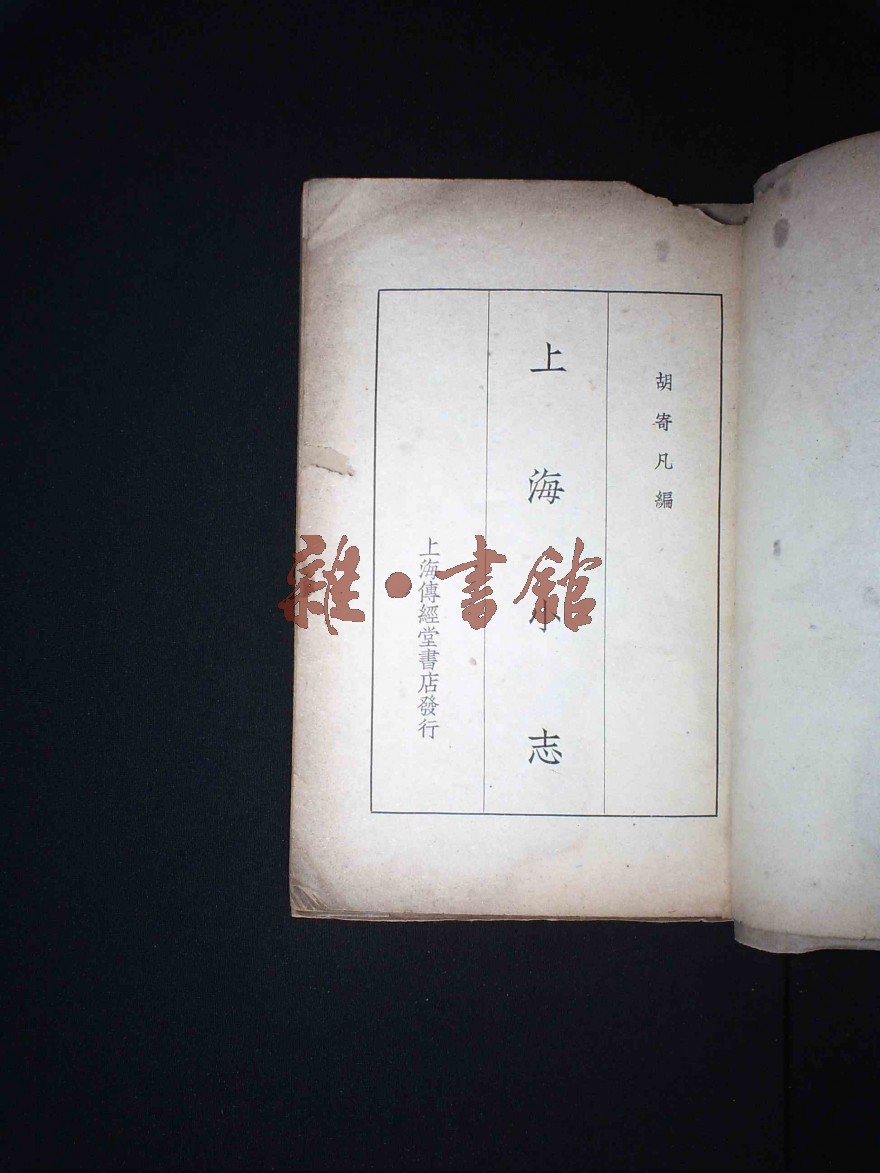 胡寄凡編
上海小志
上海傳經堂書店發行
雜·書館